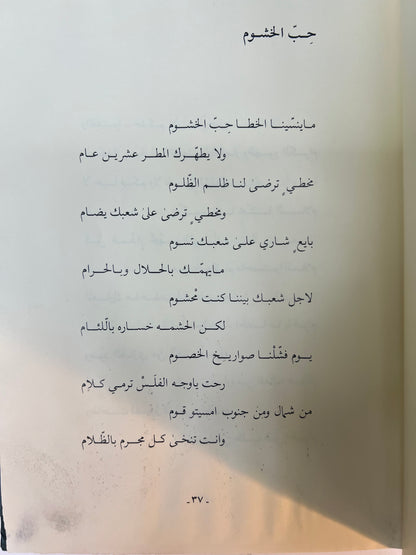 حِبّ الخشوم
ماينسّينا الخطا حِبّ الخشوم
ولا يطهّرك المطر عشرين عام
مخطيٍ ترضىٰ لنا ظلم الظّلوم
ومخطيٍ ترضىٰ علىٰ شعبك يضام
بايعٍ شاري علىٰ شعبك تسوم
مايهمّك بالحلال وبالحرام
لاجل شعبك بيننا كنت مْحشوم
لكن الحشمه خساره باللئام
يوم فشّلْنا صواريخ الخصوم
رحت ياوجه الفلَسْ ترمي كلام
من شمال ومن جنوب امسيتو قوم
وانت تنخىٰ كل مجرم بالظّلام
- ٣٧ -